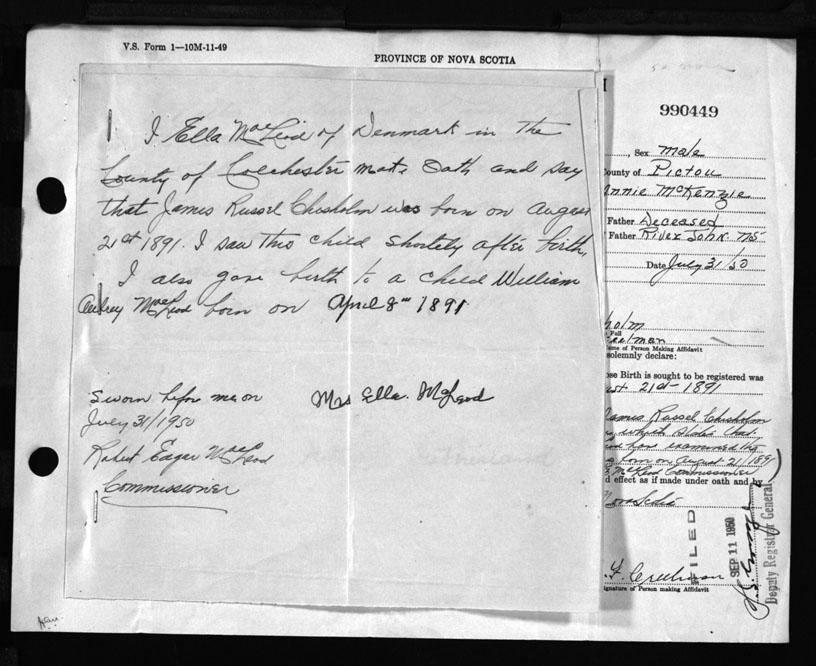 V.S. Form 1—10M-11-49
PROVINCE OF NOVA SCOTIA
I Ella MacLeod of Denmark in the
County of Colchester mate Oath and say
that James Russel Chisholm was born on August
21st 1891. I saw this child shortely after birth,
I also gave birth to a child William
Aubrey MacLeod born on April 8th 1891
Sworn before me on
July 31/1950
Mrs Ella. McLeod
Robert Edgar MacLeod
Commissioner
990449
, Sex Male
County of Pictou
Annie McKenzie
Father Deceased
Father River John NS
Date July 31/50
holm
Full
me of Person Making Affidavit
solemnly declare:
ose Birth is sought to be registered was
ust 21st 1891
James Russel Chisholm
which states that
have examined
born on August 21/1891
McLeod Commissioner
d effect as if made under oath and by
Nova Scotia
FILED
SEP 11 1950
Deputy Registrar General
F. Creelman
ignature of Person making Affidavit